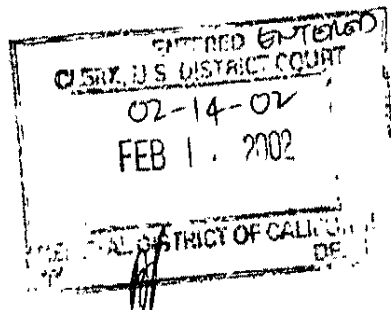 ENTERED ENTERED
CLERK, U.S. DISTRICT COURT
02-14-02
FEB 1 . 2002
AL DISTRICT OF CALIFO
DE